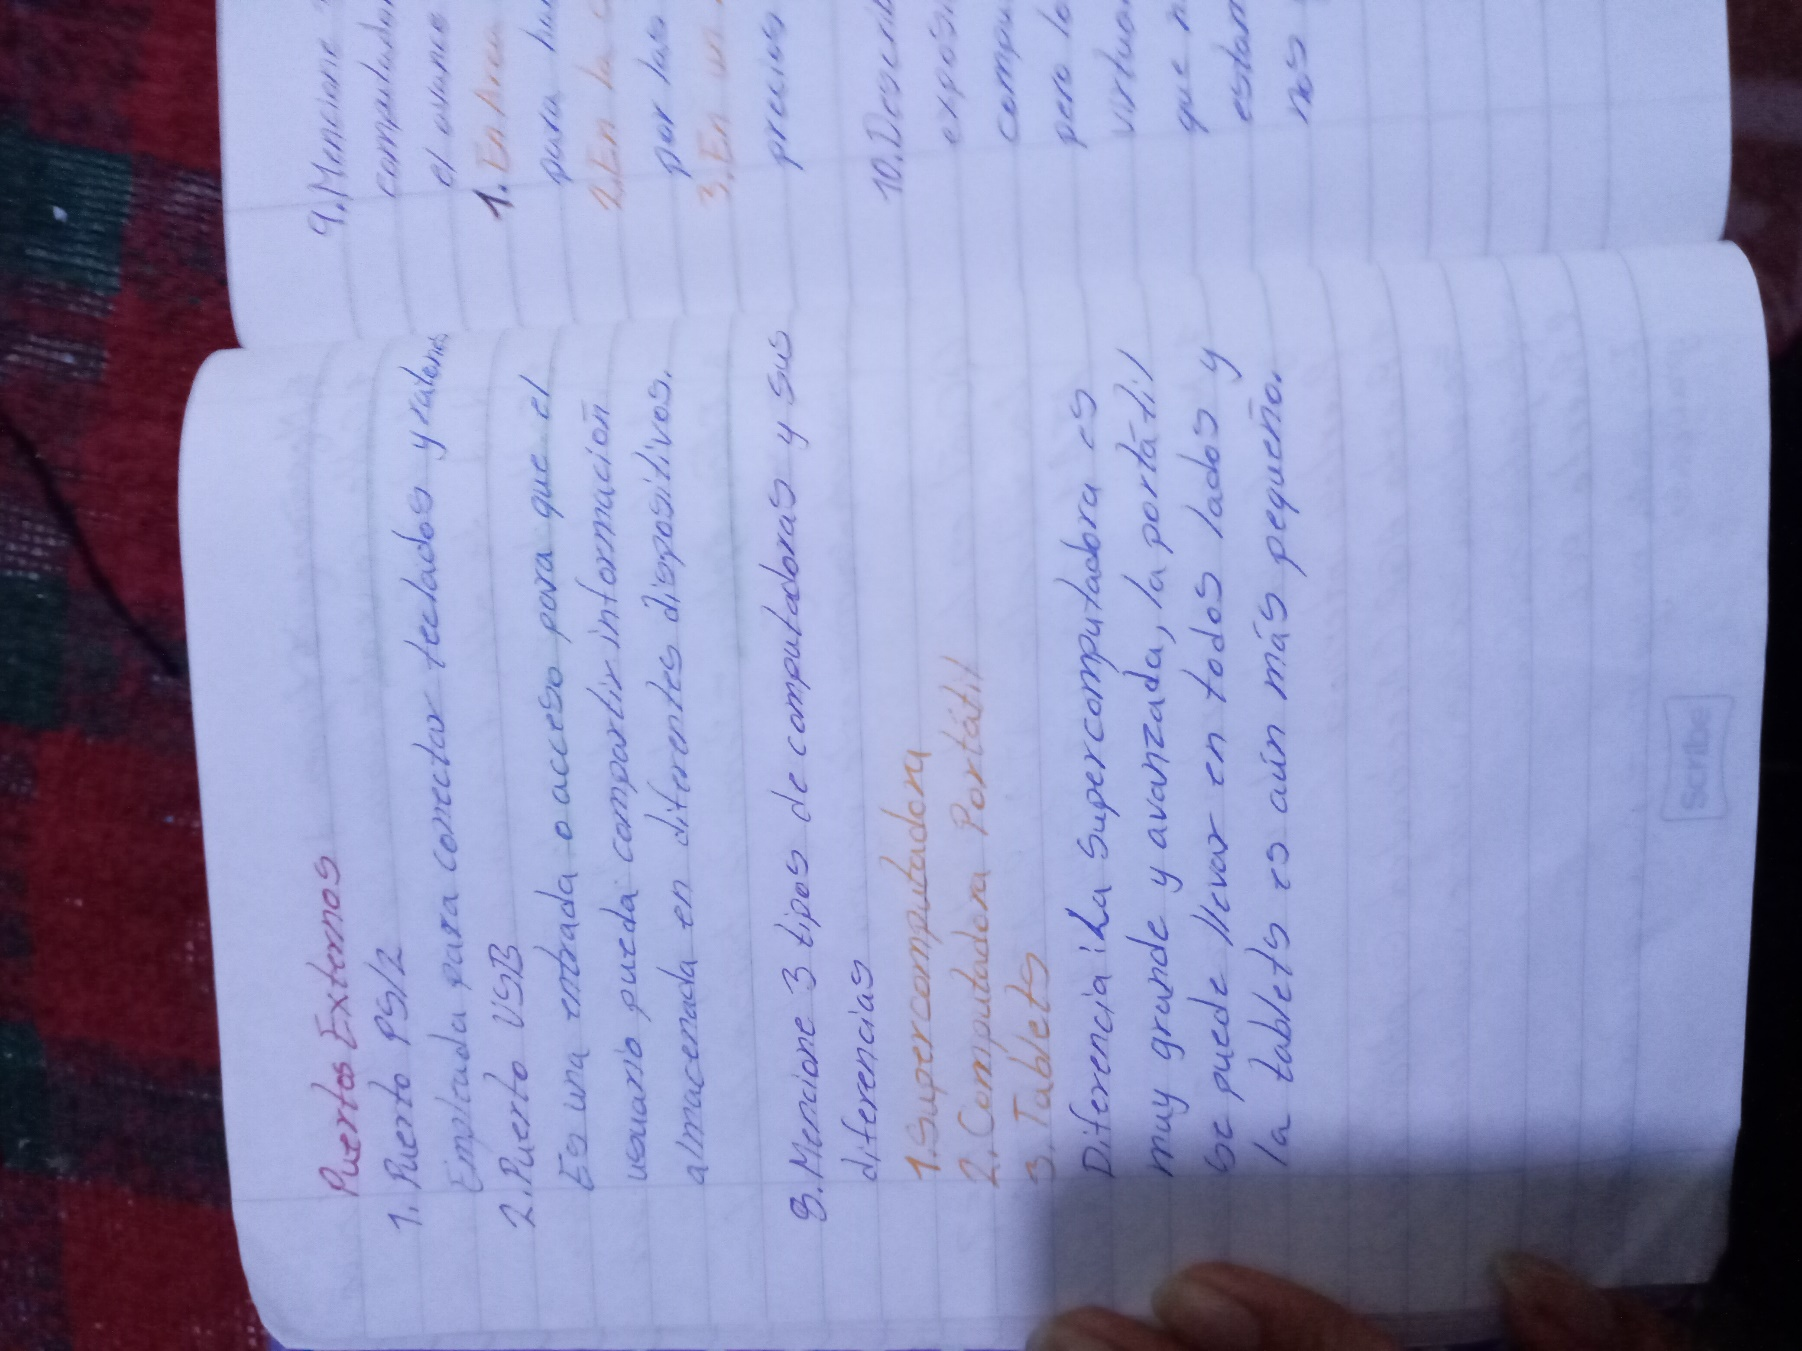 Puertos Externos
1. Puerto PS/2
Empleada para conectar teclados y ratones
2. Puerto USB
Es una entrada o acceso para que el
usuario pueda compartir información
almacenada en diferentes dispositivos.
8. Mencione 3 tipos de computadoras y sus
diferencias
1. Supercomputadora
2. Computadora Portátil
3. Tablets
Diferencia: La supercomputadora es
muy grande y avanzada, la portátil
se puede llevar en todos lados y
la tablets es aún más pequeño.
Scribe
9. Mencione
el avance
1. En Area
para
2. En la
por las
3. En un
precios
10. Describ
expos
compu
pero lo
virtua
que n
estam
nos